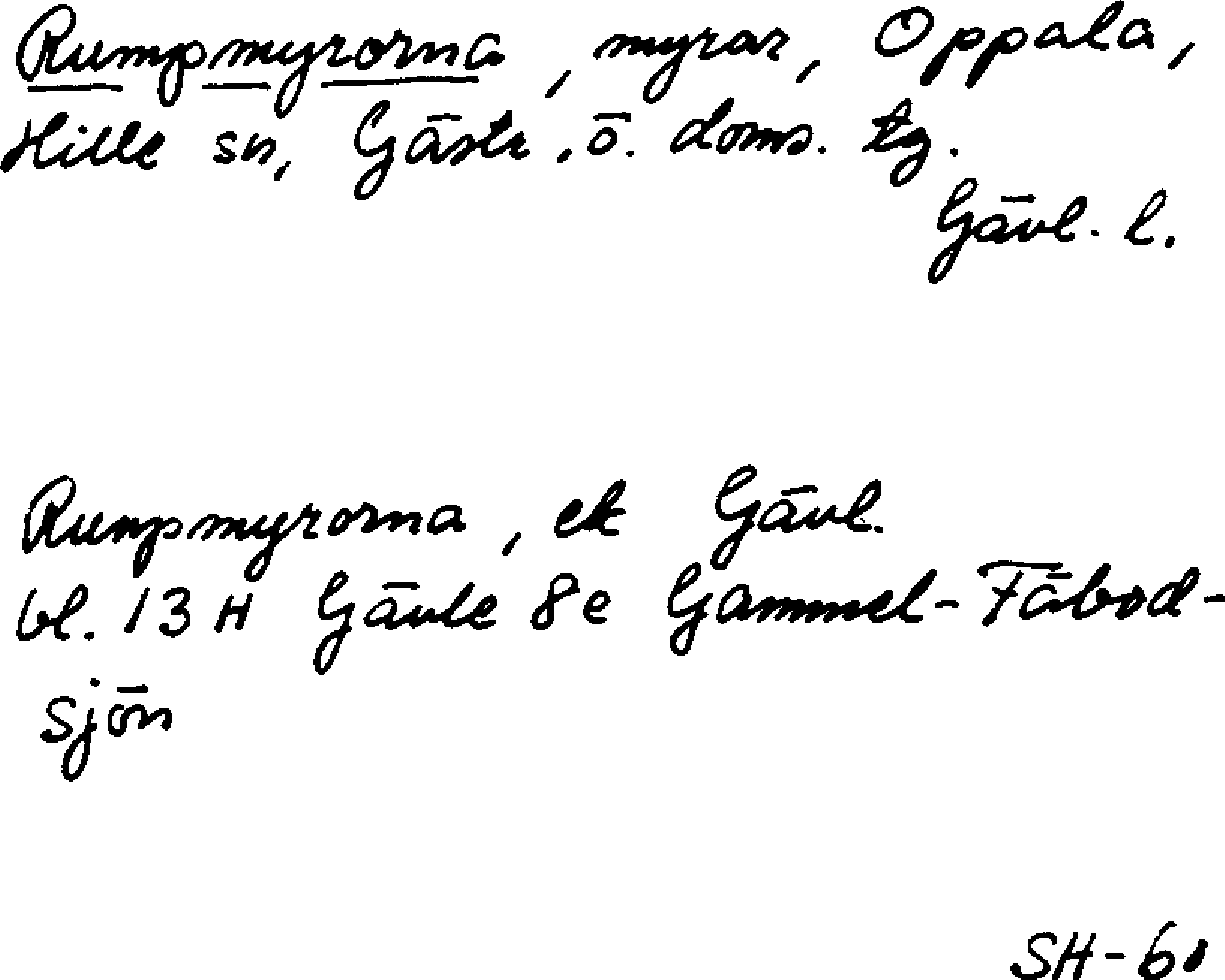 Rumpmyrorna, myrar, Oppala,
Hille sn, Gästr. ö. doms. tg.
Gävl. l.
Rumpmyrorna, ek Gävl.
bl. 13 H Gävle 8e Gammel-Fäbod-
sjön
SH-60